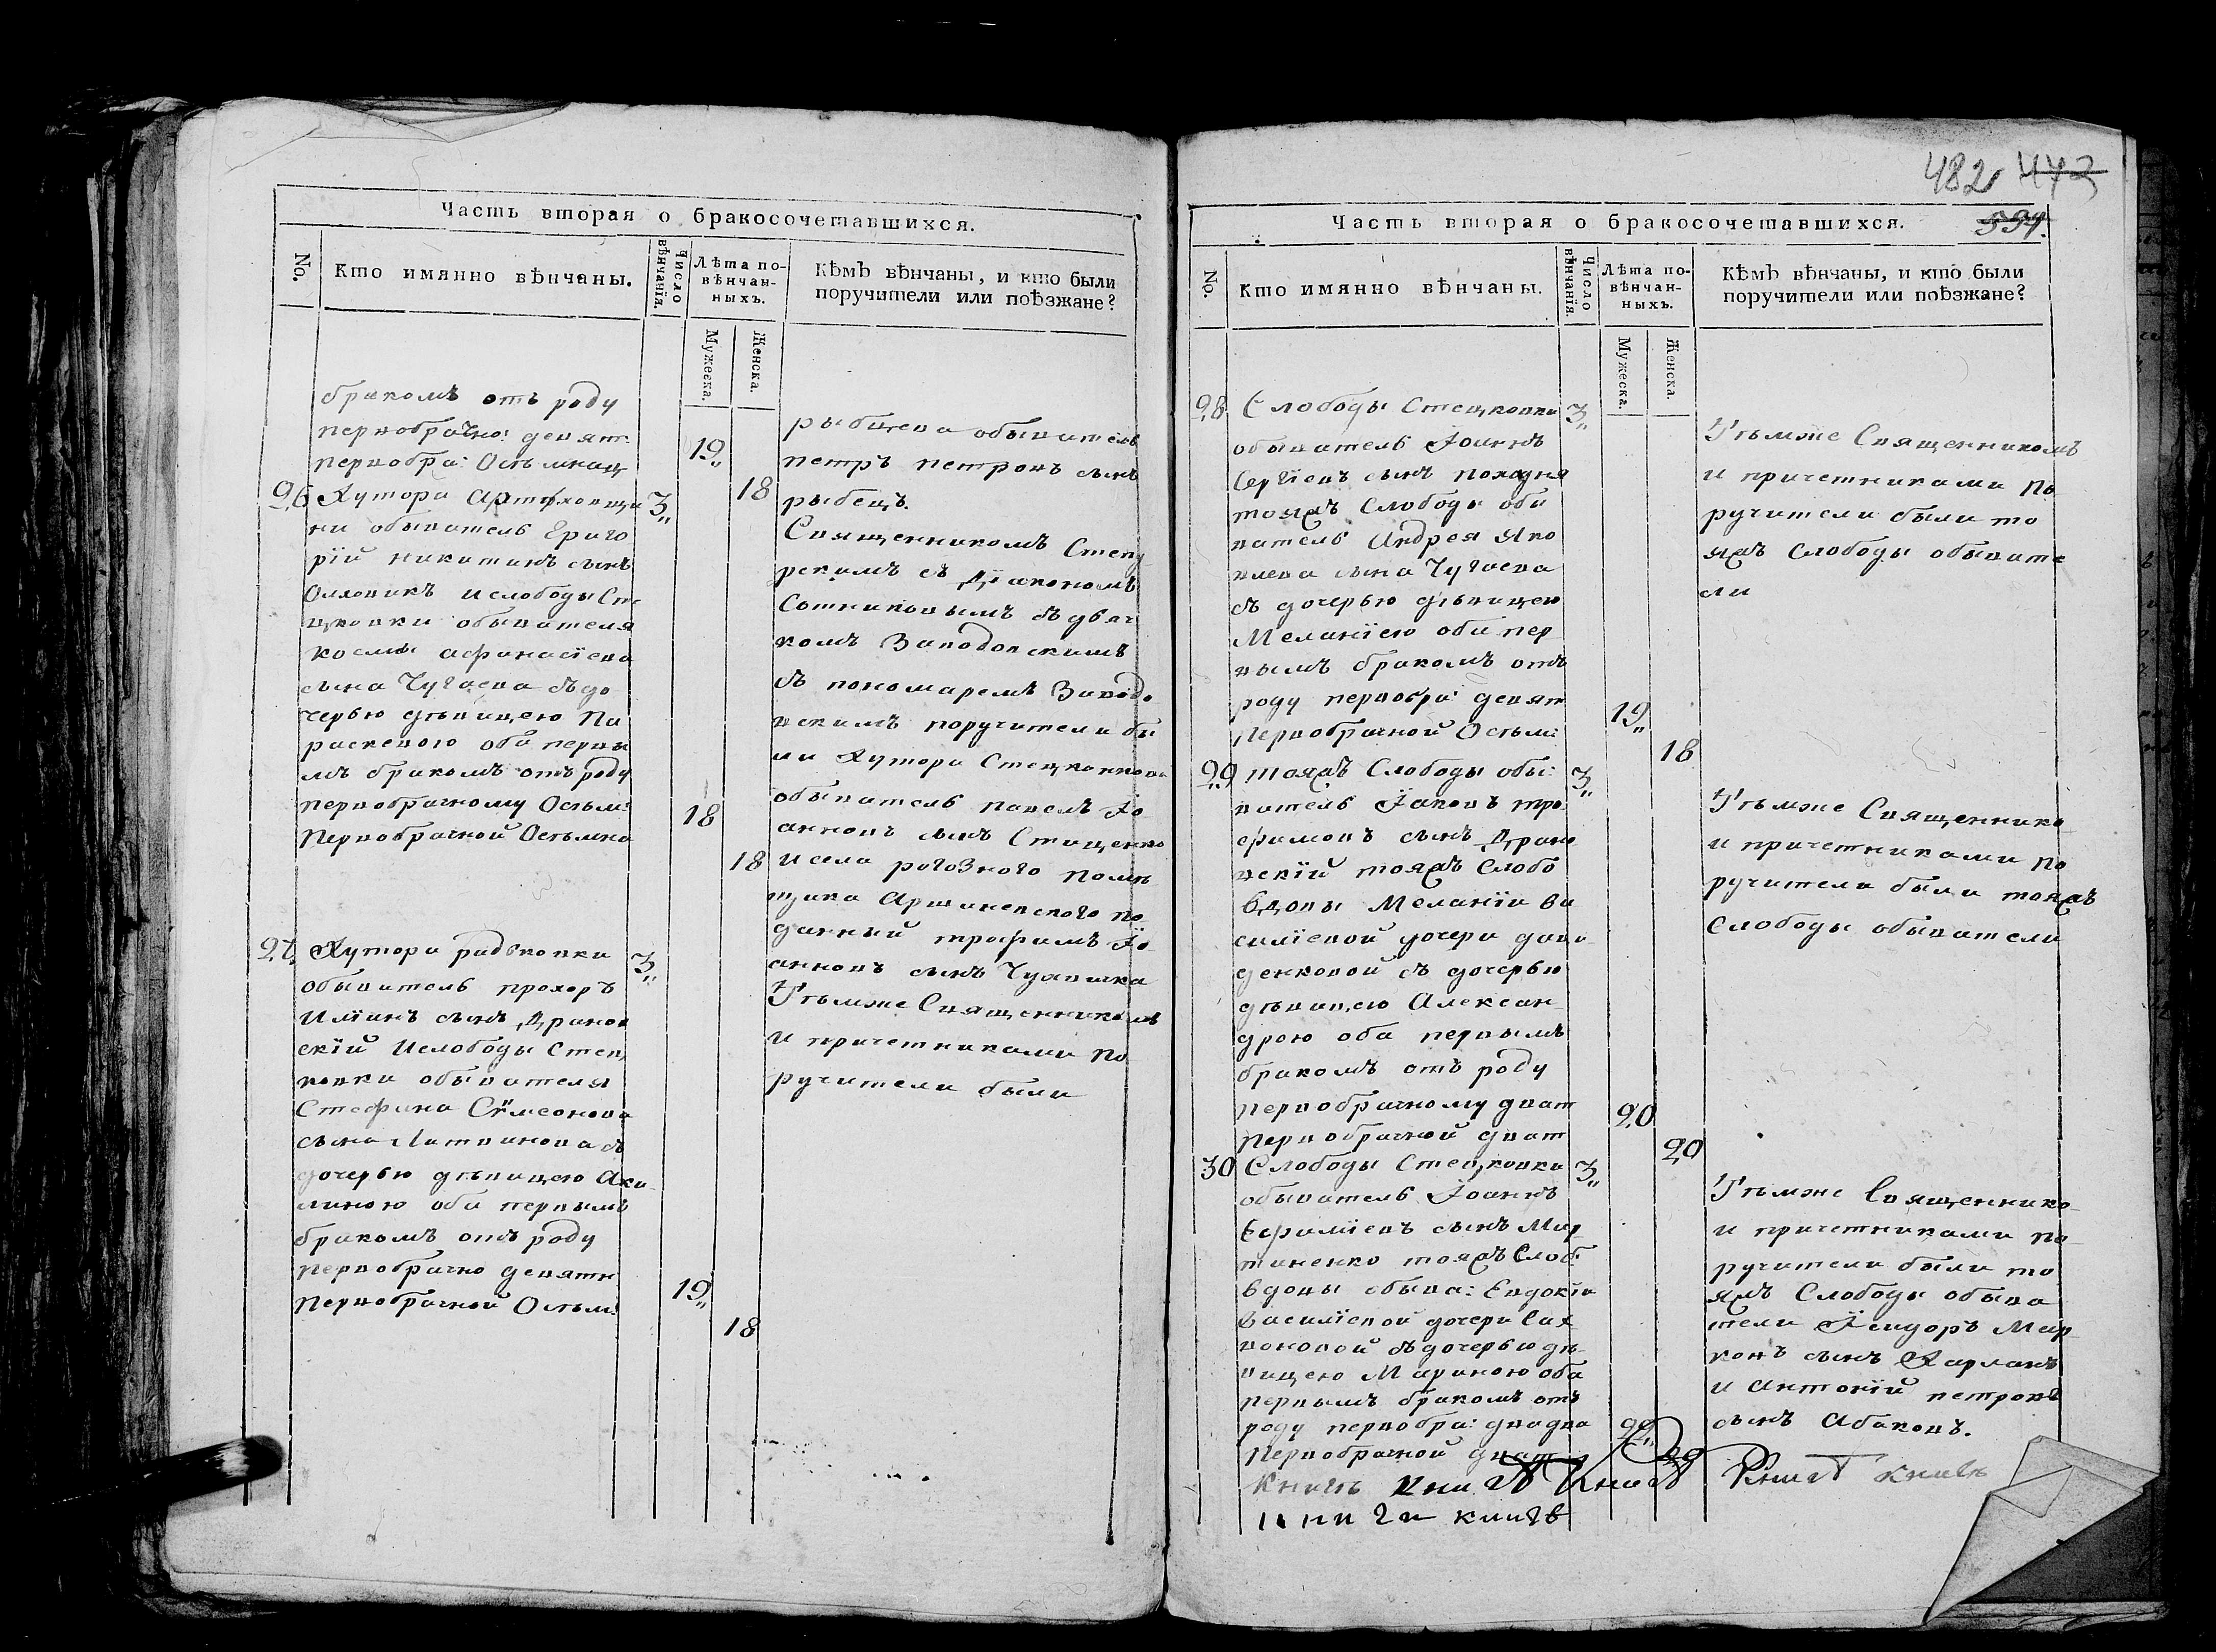 Часть вторая о бракосочетавшихся.
No.
Кто имянно вѣнчаны.
Число вѣнчанія.
Лѣта по-
вѣнчан-
ныхъ.
Мужеска.
Женска.
Кѣмъ вѣнчаны, и кто были
поручители или поѣзжане?
бракомъ отъ роду
первобрачно: девят:
19
первобра: Осьмнац
18
рыбцева обыватель
петръ петровъ сынъ
рыбецъ.
26 Хутора Артюховщи 3
ни обыватель Григо
рїй никитинъ сынъ
Олховикъ и слободы Сте
цковки обывателя
космы афанасїева
сына Чугаева съ до
черью дѣвицею Па
раскевою оба первы
мъ бракомъ отъ роду
первобрачному Осьм: 18
Первобрачной Осьмна 18
Священникомъ Степу
рскимъ съ Дїакономъ
Сотниковымъ съ дьяч
комъ Заводовскимъ
съ пономаремъ Заводо
вскимъ поручители бы
ли Хутора Стецковкова
обыватель павелъ Їо
анновъ сынъ Стаценко
и села рогозного помѣ
щика Аршеневского по
данный трофимъ Їо
анновъ сынъ
27 Хутора радковки 3
обыватель прохоръ
Илїинъ сынъ Дранов
скїй и слободы Стец
ковки обывателя
Стефана Сѵмеонова
сына Литвинова съ
дочерью дѣвицею Аки
линою оба первымъ
бракомъ отъ роду
первобрачно девятн 19
Первобрачной Осьм: 18
Тѣмже Священникомъ
и причетниками по
ручители были
482 473
394.
Часть вторая о бракосочетавшихся.
No.
Кто имянно вѣнчаны.
Число вѣнчанія.
Лѣта по-
вѣнчан-
ныхъ.
Мужеска.
Женска.
Кѣмъ вѣнчаны, и кто были
поручители или поѣзжане?
28 Слободы Стецковки 3
обыватель Їоаннъ
Сергїевъ сынъ походня
тояжъ Слободы обы
ватель Андрея Яко
влева сына Чугаева
съ дочерью дѣвицею
Меланїею оба пер
вымъ бракомъ отъ
роду первобра: девят 19
Первобрачной Осьм: 18
Тѣмже Священникомъ
и причетниками по
ручители были то
яжъ Слободы обывате
ли
29 тояжъ Слободы обы: 3
ватель Їаковъ тро
фимовъ сынъ Драно
вскїй тояжъ Слобо
вдовы Меланїи ва
силїевой дочери дави
денковой съ дочерью
дѣвицею Алексан
дрою оба первымъ
бракомъ отъ роду
первобрачному дват 20
первобрачной дват 20
Тѣмже Священнико
и причетниками по
ручители были тояжъ
Слободы обыватели
30 Слободы Стецковки 3
обыватель Їоаннъ
Ефимїевъ сынъ Мар
тиненко тояжъ Слоб:
вдовы обыва: Евдокїи
Василїевой дочери Сах
воновой съ дочерью дѣ
вицею Мариною оба
первымъ бракомъ отъ
роду первобра: двадва 22
Первобрачной дват 20
Тѣмже Священнико
и причетниками по
ручители были то
яжъ Слободы обыва
тели Їсидоръ Мар
ковъ сынъ Карланъ
и Антонїй петровъ
сынъ Абаковъ.